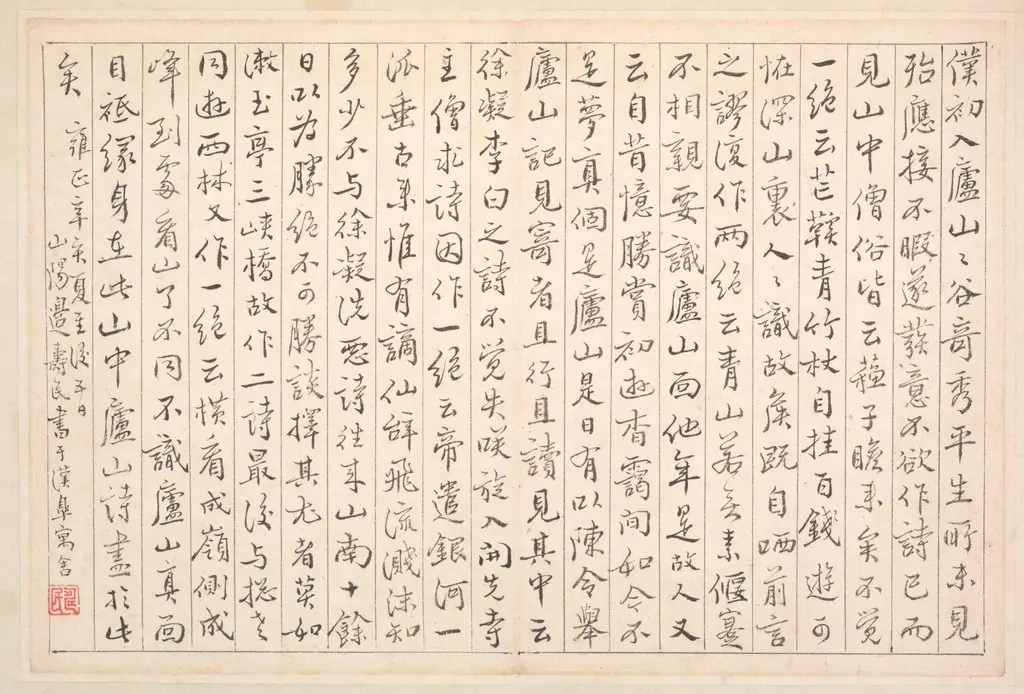 僕初入廬山〻谷奇秀平生所未見
殆應接不暇遂發意不欲作詩已而
見山中僧俗皆云蘓子瞻来矣不覺
一絕云芒鞵青竹杖自挂百錢遊可
怪深山裏人〻識故矦既自哂前言
之謬復作兩絕云青山若无素偃蹇
不相親要識廬山面他年是故人又
云自昔憶勝賞初遊杳靄間如今不
是夢真個是廬山是日有以陳令舉
廬山記見寄者且行且讀見其中云
徐凝李白之詩不覺失咲旋入開先寺
主僧求詩因作一絕云帝遣銀河一
派垂古来惟有謫仙辞飛流濺沫知
多少不与徐凝洗惡詩往来山南十餘
日以為勝絕不可勝談擇其尤者莫如
漱玉亭三峽橋故作二詩最後与摠老
同遊西林又作一絕云橫看成嶺側成
峰到處看山了不同不識廬山真面
目祗緣身在此山中廬山詩盡於此
矣
雍正辛亥夏至後五日
山陽邊壽民書于漢皐寓舍